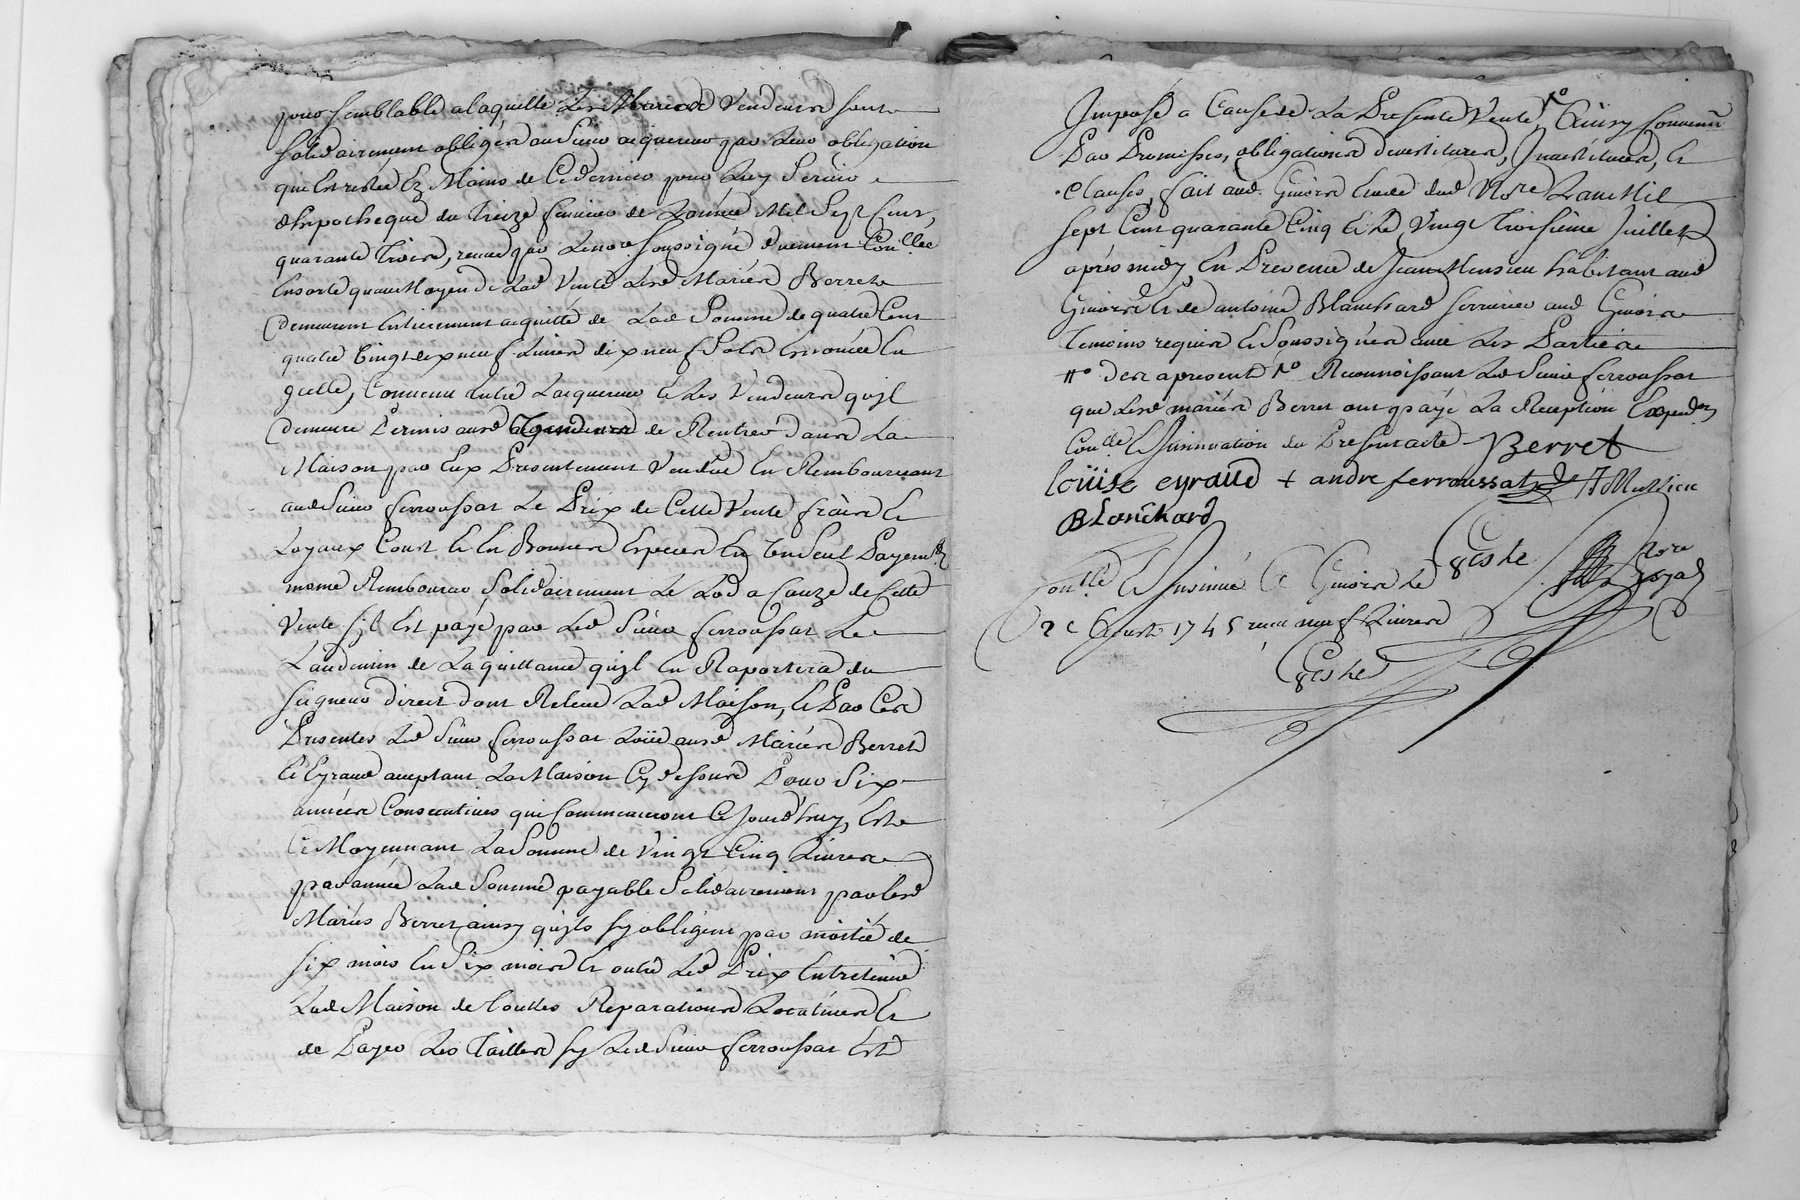 pour semblable a laquelle Les Mariés Vendeurs sont
solidairement obligés au Sieur acquereur par Leur obligation
qui Est restée Ez Mains de Ce dernier pour Luy Servir
d'hipotheque du treize fevrier de L'année Mil Sept Cent
quarante Trois, receue par Le nore soussigné duement Conllée
Ensorte quau Moyen de Lad Vente Lesd Mariés Berret
demeurent Entierement acquitté de Lad Somme de quatre Cent
quatre Vingt dix neuf Livres dix neuf Sols Enoncée En
jcelle, Convenu Entre Lacquereur et Les Vendeurs quil
demeure Permis ausd de Rentrer dans La
Maison par Eux Presentement Vendue En Remboursant
aud Sieur ferroussat Le Prix de Cette Vente fraix Et
Loyaux Cout Et En Bonnes Especes En Un Seul Payemt
meme Rembourcer Solidairement Le Lod a Cauze de Cette
Vente sjl Est payé par Led Sieur ferroussat Le
Landemin de La quittance quil En Raportera du
seigneur direct dont Releve Lad Maison, Et Par Ces
Presentes Led Sieur ferroussat Loüe ausd Mariés Berret
Et Eyraud acceptant La Maison Cy dessus Pour Six
années Consecutives qui Commenceront Ce Jourd'huy, Est
Ce Moyennant La Somme de Vingt Cinq Livres
par année Lad Somme payable Solidairement par lesd
Mariés Berret ainsy quils sy obligent par moitié de
six mois En Six mois Et outre Led Prix Entretenir
Lad Maison de toutes Reparations Locatives Et
de Payer Les Tailles sy Led Sieur ferroussat Est
Jmposé a Cause de La Presente Vente, Ainsy Convenu
Par Promisses, obligations devestitures, Jnvestitures, et
Clauses, fait aud Givors Etude dud Nore Lan Mil
sept Cent quarante Cinq Et Le Vingt Troisieme Juillet
aprés midy En Presence de Jean Mussieu habitant aud
Givors Et de antoine Blanchard serrurier aud Givors
Temoins requis Et Soussignés avec Les Parties
Reconnoissant Led Sieur ferroussat
que Lesd mariés Berret ont payé La Reception Expedon
Conlle Et Jnsinuation du Present acte Berret
loüise eyraud + andre ferroussat JMussieu
Blanchard
nore Royal
Conllé Et Jnsinué a Givors Le
2e Aoust 1745 receu neuf Livres